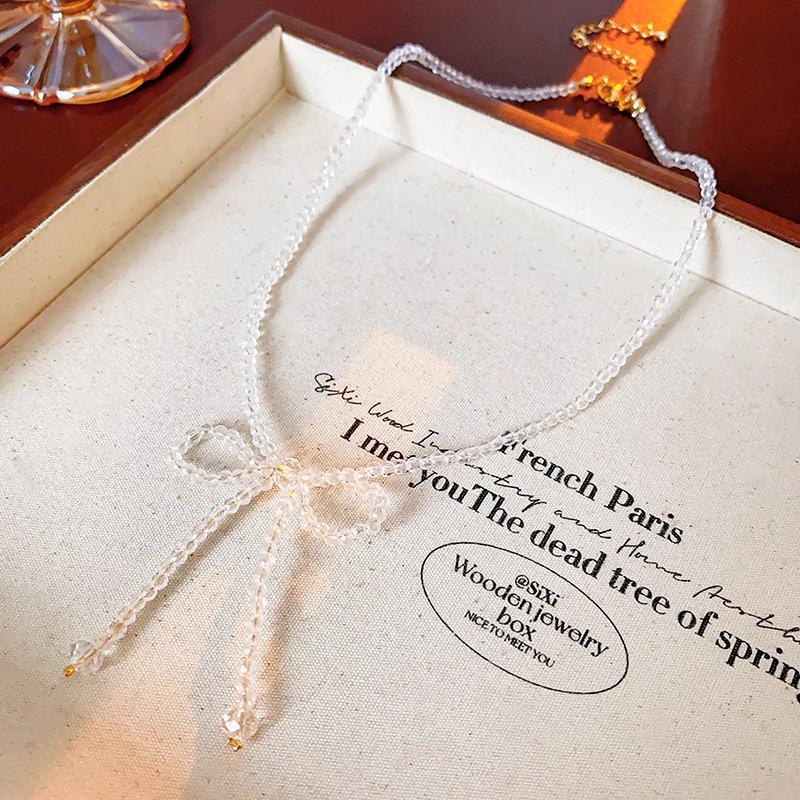 SiXi Wood Industry and Home Aesth
"French Paris
I met you The dead tree of spring
@SiXi
Wooden jewelry
box
NICE TO MEET YOU